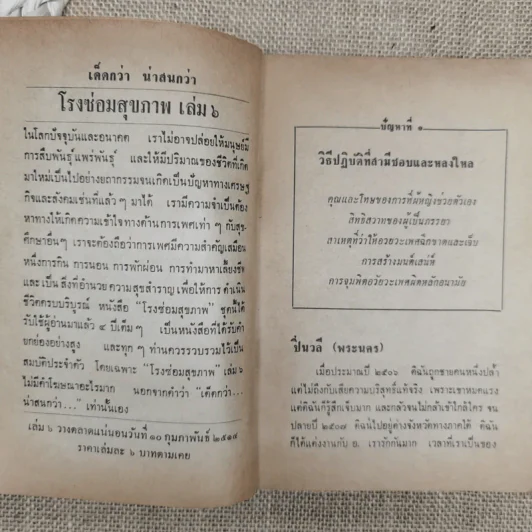 เด็ดกว่า น่าสนกว่า
โรงซ่อมสุขภาพ เล่ม ๖
ในโลกปัจจุบันและอนาคต เราไม่อาจปล่อยให้มนุษย์มี
การสืบพันธุ์ แพร่พันธุ์ และให้มีปริมาณของชีวิตที่เกิด
มาใหม่เป็นไปอย่างยถากรรมจนเกิดเป็นปัญหาทางเศรษฐ
กิจและสังคมเช่นที่แล้ว ๆ มาได้ เรามีความจำเป็นต้อง
หาทางให้เกิดความเข้าใจทางด้านการเพศเท่า ๆ กับสุข-
ศึกษาอื่น ๆ เราจะต้องถือว่าการเพศมีความสำคัญเสมือน
หนึ่งการกิน การนอน การพักผ่อน การทำมาหาเลี้ยงชีพ
และเป็น สิ่งที่อำนวยความสุขสำราญ เพื่อให้การ ดำเนิน
ชีวิตครบบริบูรณ์ หนังสือ "โรงซ่อมสุขภาพ" ชุดนี้ได้
รับใช้ผู้อ่านมาแล้ว ๔ ปีเต็ม ๆ เป็นหนังสือที่ได้รับคำ
ยกย่องอย่างสูง และทุก ๆ ท่านควรรวบรวมไว้เป็น
สมบัติประจำตัว โดยเฉพาะ "โรงซ่อมสุขภาพ" เล่ม ๖
ไม่มีคำโฆษณาอะไรมาก นอกจากคำว่า "เด็ดกว่า...
น่าสนกว่า..." เท่านั้นเอง
เล่ม ๖ วางตลาดแน่นอนวันที่ ๑๐ กุมภาพันธ์ ๒๕๑๗
ราคาเล่มละ ๖ บาทตามเคย
ปัญหาที่ ๑
วิธีปฏิบัติที่สามีชอบและหลงไหล
คุณและโทษของการที่ผู้หญิงช่วยตัวเอง
สิทธิสวาทของผู้เป็นภรรยา
สาเหตุที่ว่าให้อวัยวะเพศฉีกขาดและเจ็บ
การสร้างมนต์เสน่ห์
การจุมพิตอวัยวะเพศผิดหลักอนามัย
ปิ่นวลี (พระนคร)
เมื่อประมาณปี ๒๕๐๖ ดิฉันถูกชายคนหนึ่งปล้ำ
แต่ไม่ถึงกับเสียความบริสุทธิ์แท้จริง เพราะเขาหมดแรง
แต่ดิฉันก็รู้สึกเจ็บมาก และกลัวจนไม่กล้าเข้าใกล้ใคร จน
ปลายปี ๒๕๐๗ ดิฉันไปอยู่ต่างจังหวัดทางภาคใต้ ดิฉัน
ก็ได้แต่งงานกับ ย. เรารักกันมาก เวลาที่เราเป็นของ